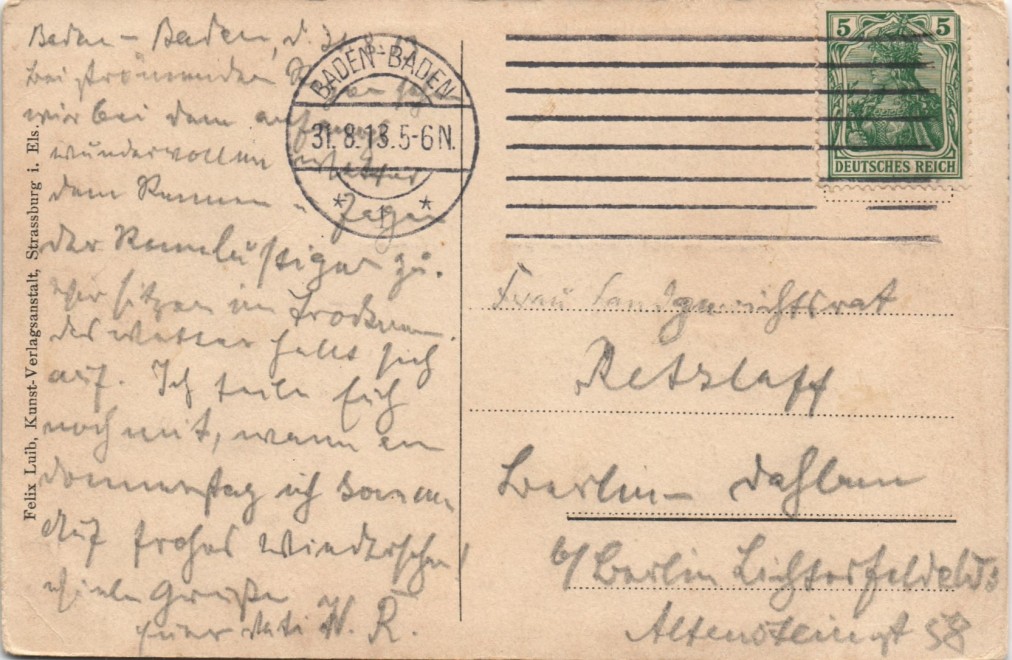 Baden-Baden, d. 31. 8. 13
Bei strömenden Regen
wir bei dem anfangs
wundervollen Wetter
dem Rennen
der Rennlustigen zu.
Wir sitzen im Trocknen.
das Wetter hellt sich
auf. Ich teile Euch
noch mit, wann am
Donnerstag ich komme
Auf frohes Wiedersehen!
Viele Grüße
Euer Vati W. R.
Felix Luib, Kunst-Verlagsanstalt, Strassburg i. Els.
BADEN-BADEN
31.8.13.5-6N.
* *
5 5
DEUTSCHES REICH
Frau Landgerichtsrat
Retzlaff
Berlin-Dahlem
b/ Berlin Lichterfelde
Altensteinst 58